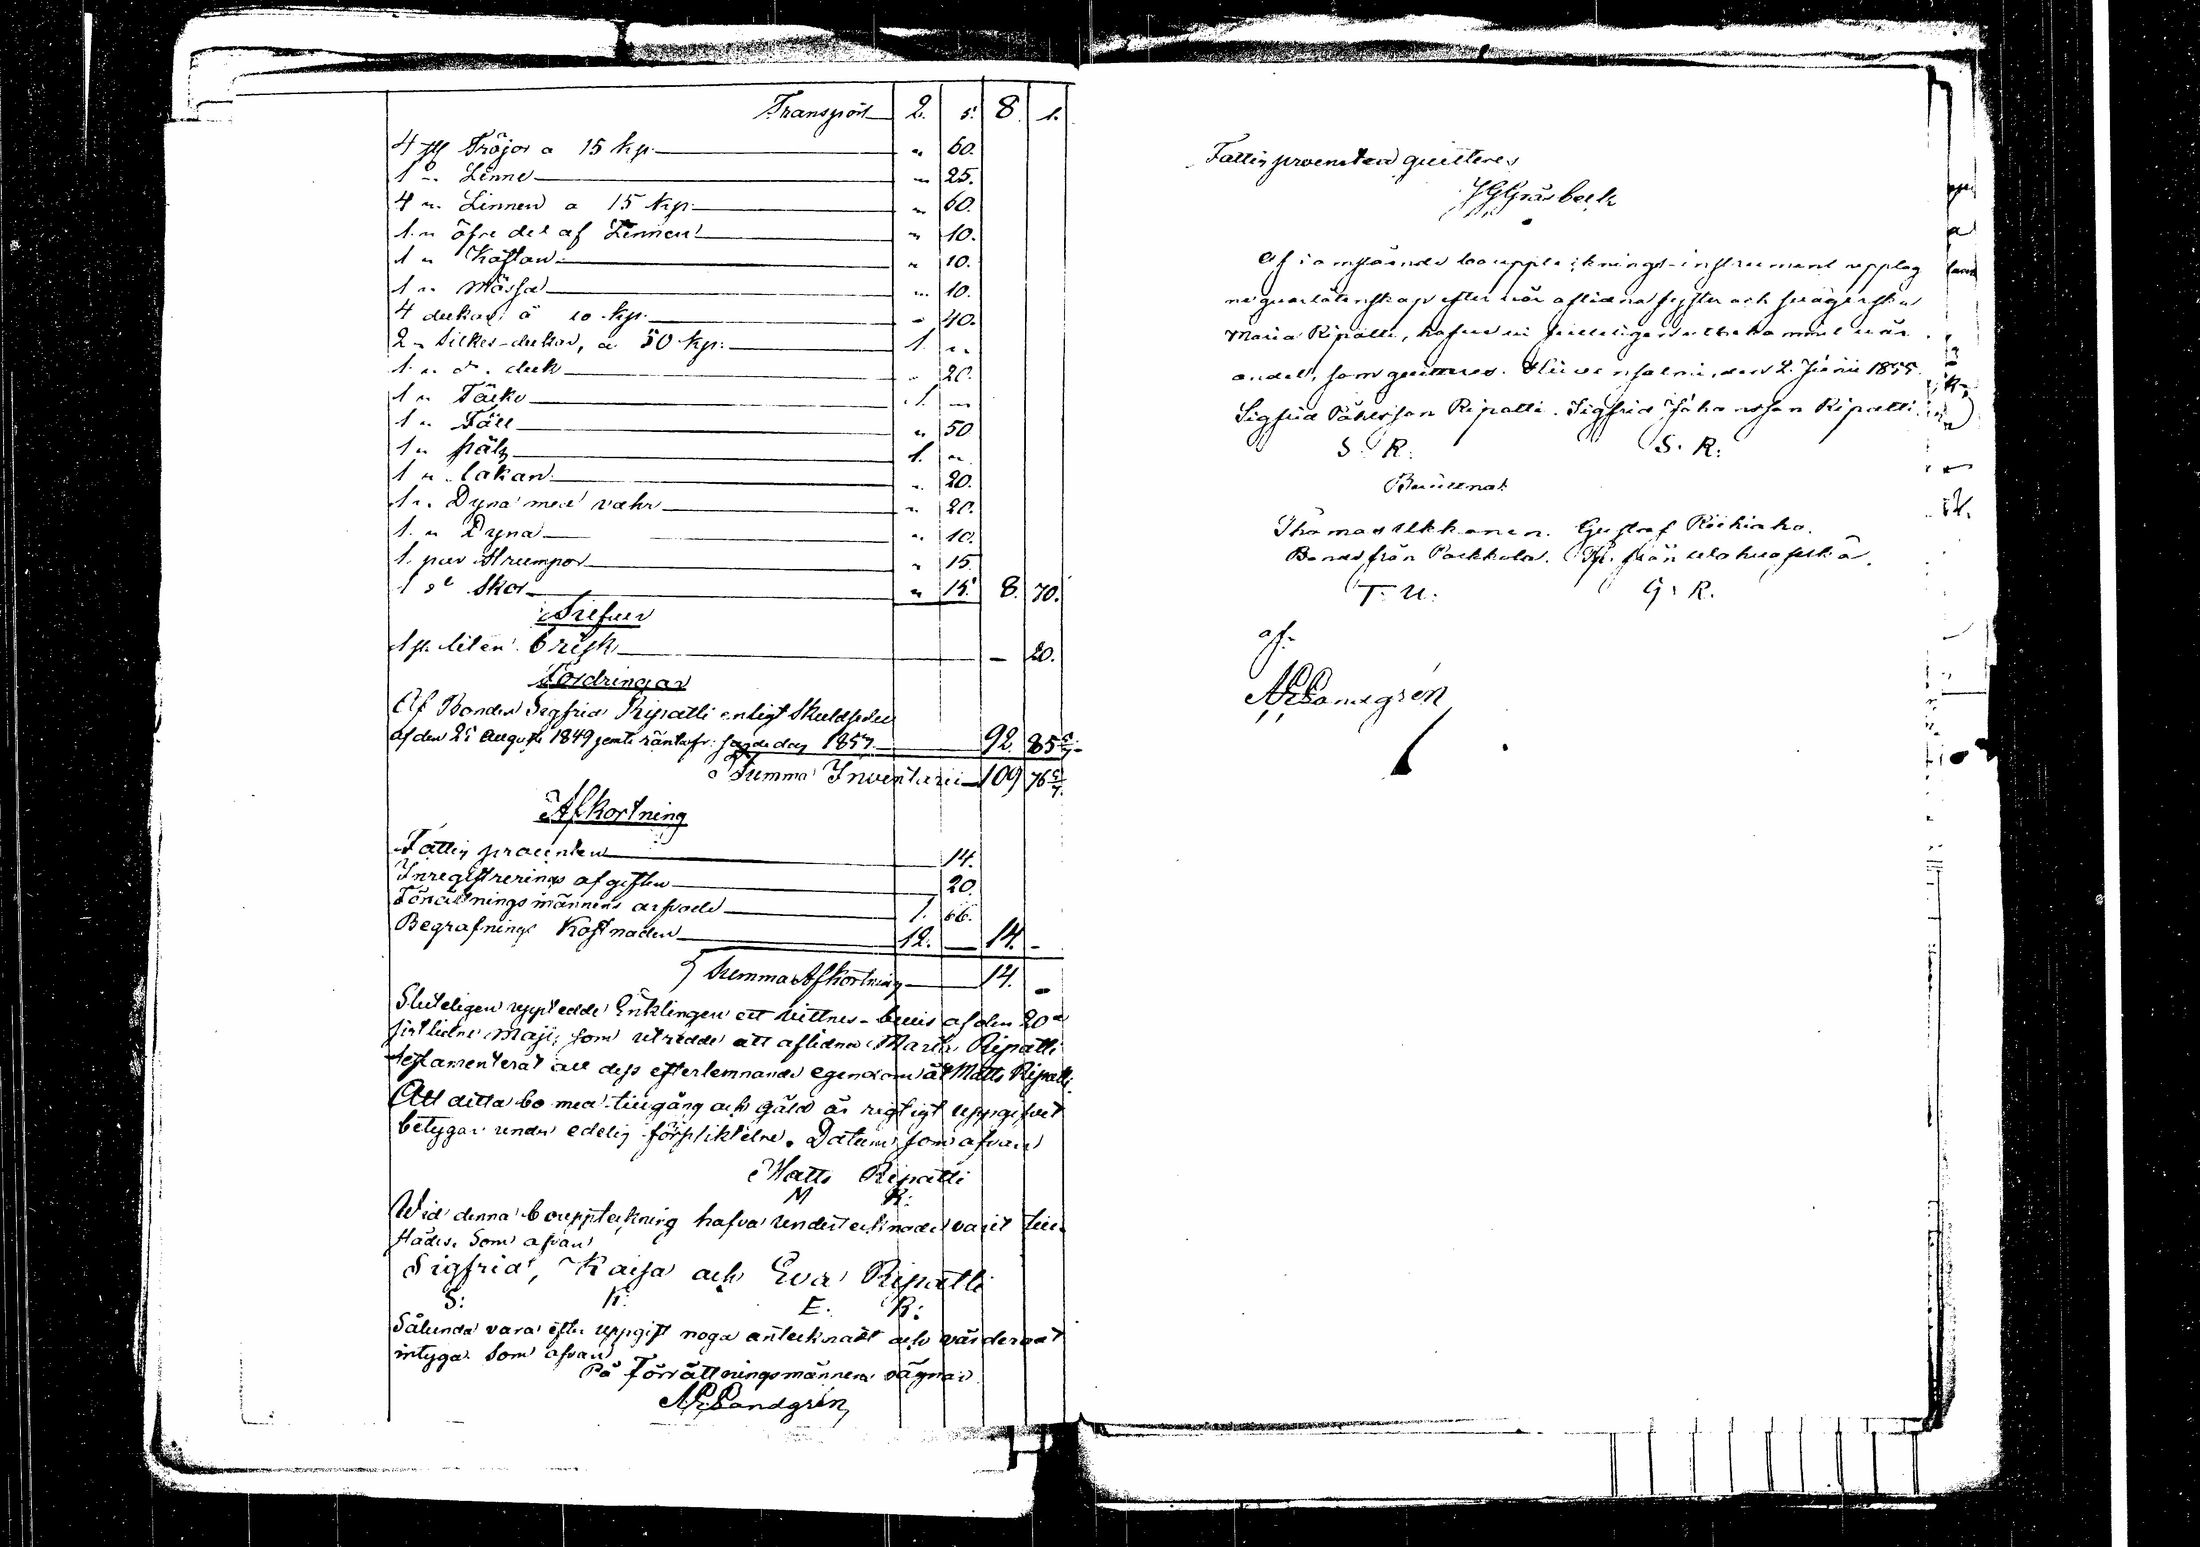 Transport 2. 5. 8. 1.
4 st Tröjor a 15 kp. „ 60.
1 „ Linne „ 25.
4 „ Linnen a 15 kp. „ 60.
1 „ öfre del af Linnen „ 10.
1 „ Koftan „ 10.
1 „ Mössa „ 10.
4 dukar à 10 kp. „ 40.
2 „ Silkes-dukar, a 50 kp. 1. „
1 „ d:o duk „ 20.
1 „ Täcke 1. „
1 „ Fäll „ 50
1 „ päls 1. „
1 „ lakan „ 20.
1 „ Dyna med vahr „ 20.
1 „ Dyna „ 10.
1 par Strumpor „ 15.
1 d:o Skor „ 15. 8. 70.
1 st. liten brisk — 20.
Fordringar
Af Bonden Sigfrid Ripatti enligt Skuldsedel
af den 25 Augusti 1849 jemte ränta fr. samma dag 1857. 92. 85 5/7.
Summa Inventarii 109 76 5/7.
Afkortning
Fattig procenten 14.
Inregistrerings afgiften 20.
Förrättningsmännens arfvode 1. 66.
Begrafnings Kostnaden 12. — 14. -
Summa Afkortning 14. -
Sluteligen uppledde Enklingen ett vittnes-bevis af den 20
sistlidne Maji, som utredde att aflidna Maria Ripatti
testamenterat all dess efterlemnande egendom åt Matts Ripatti.
Att detta bo med tillgång och gäld är rigtigt uppgifvet
betygar under edelig förpliktelse. Datum som ofvan
Matts Ripatti
M R:
Wid denna bouppteckning hafva undertecknade varit till-
städes. Som ofvan
Sigfrid, Kaisa och Eva Ripatti
S: K: E. R:
Sålunda vara efter uppgift noga antecknadt och värderadt
intyga. Som ofvan
På Förrättningsmännens vägnar
Sandgrén
Fattigprocenten quitteres
J G Gråsbeck
Af i omstående bouppteckningsinstrument upptag
ne quarlåtenskap efter vår aflidna syster och svägerska
Maria Ripatti, hafva vi fulleligen utbekommit vår
andel, som quitteres. den 2. Junii 1855.
Sigfrid Påhlsson Ripatti. Sigfrid Johansson Ripatti.
S. R. S. R.
Bevittnat
Thomas Ukkonen. Gustaf
Bonde från från
T. U. G. R.
af.
Sandgrén